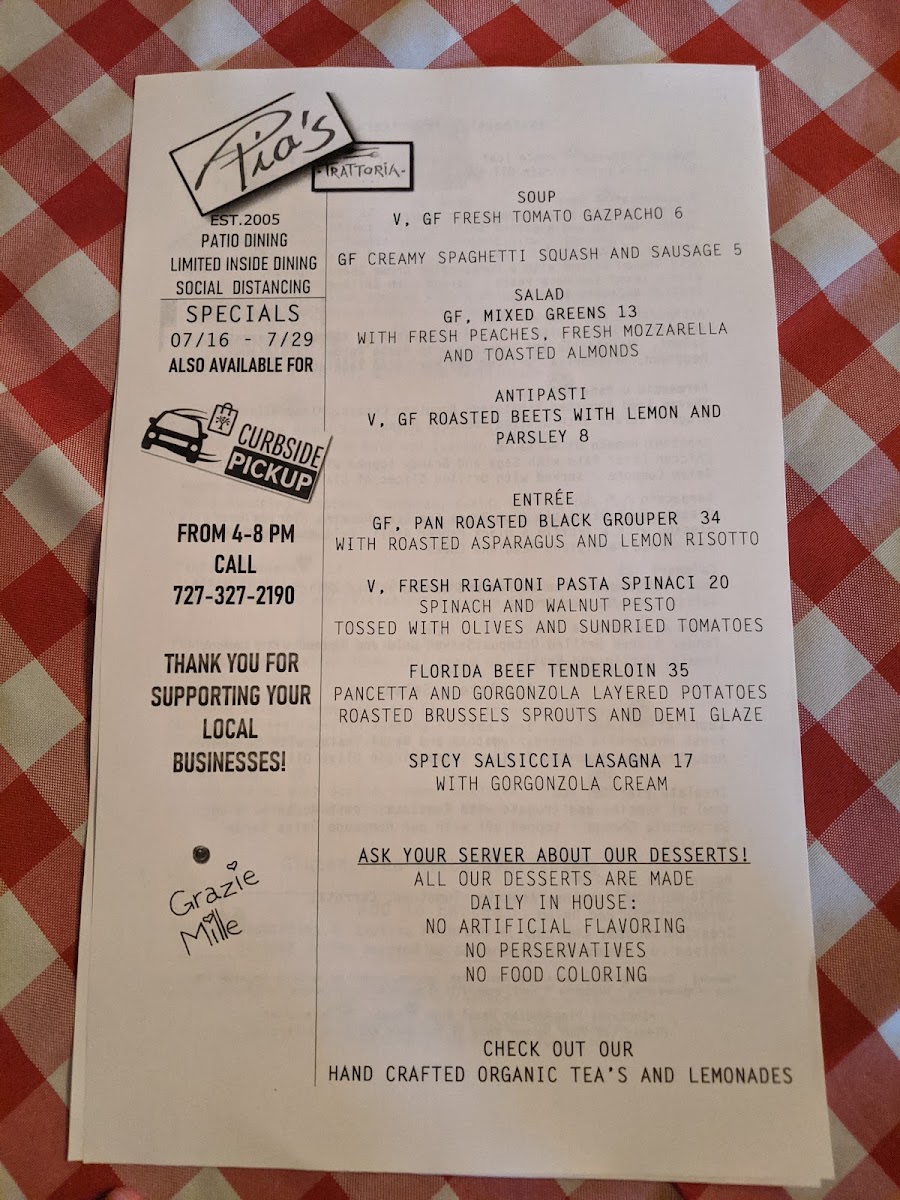 Pia's
TRATTORIA
EST.2005
PATIO DINING
LIMITED INSIDE DINING
SOCIAL DISTANCING
SPECIALS
07/16 - 7/29
ALSO AVAILABLE FOR
CURBSIDE
PICKUP
FROM 4-8 PM
CALL
727-327-2190
THANK YOU FOR
SUPPORTING YOUR
LOCAL
BUSINESSES!
Grazie
Mille
SOUP
V, GF FRESH TOMATO GAZPACHO 6
GF CREAMY SPAGHETTI SQUASH AND SAUSAGE 5
SALAD
GF, MIXED GREENS 13
WITH FRESH PEACHES, FRESH MOZZARELLA
AND TOASTED ALMONDS
ANTIPASTI
V, GF ROASTED BEETS WITH LEMON AND
PARSLEY 8
ENTRÉE
GF, PAN ROASTED BLACK GROUPER 34
WITH ROASTED ASPARAGUS AND LEMON RISOTTO
V, FRESH RIGATONI PASTA SPINACI 20
SPINACH AND WALNUT PESTO
TOSSED WITH OLIVES AND SUNDRIED TOMATOES
FLORIDA BEEF TENDERLOIN 35
PANCETTA AND GORGONZOLA LAYERED POTATOES
ROASTED BRUSSELS SPROUTS AND DEMI GLAZE
SPICY SALSICCIA LASAGNA 17
WITH GORGONZOLA CREAM
ASK YOUR SERVER ABOUT OUR DESSERTS!
ALL OUR DESSERTS ARE MADE
DAILY IN HOUSE:
NO ARTIFICIAL FLAVORING
NO PERSERVATIVES
NO FOOD COLORING
CHECK OUT OUR
HAND CRAFTED ORGANIC TEA'S AND LEMONADES